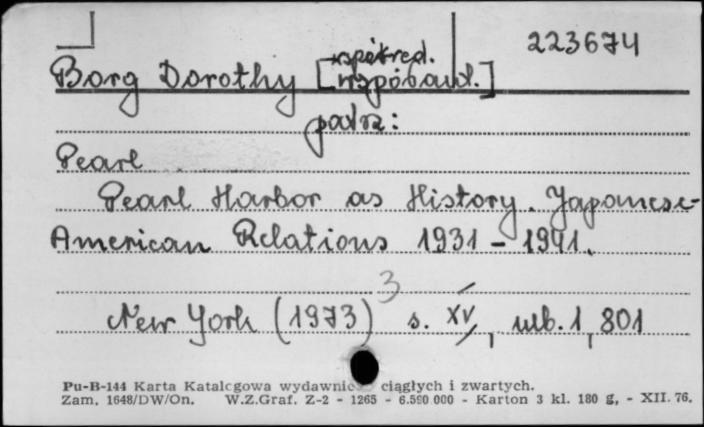 223674
współred.
Borg Dorothy [współaud.]
patrz:
Pearl
Pearl Harbor as History. Japanese-
American Relations 1931 - 1941.
3
New York (1973) s. XV, nlb. 1, 801
Pu-B-144 Karta Katalogowa wydawnic ciągłych i zwartych.
Zam. 1648/DW/On. W.Z.Graf. Z-2 - 1265 - 6.500 000 - Karton 3 kl. 180 g, - XII. 76.